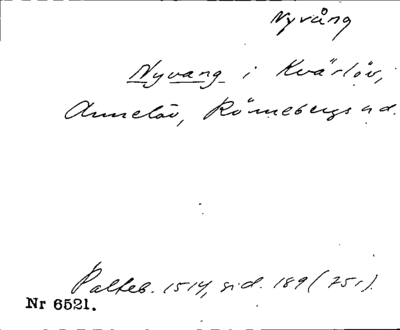 Nyvång
Nyvang i Kvärlöv,
Annelöv, Rönnebergs hd.
Palteb. 1514, sid. 189 (75r).
Nr 6521.